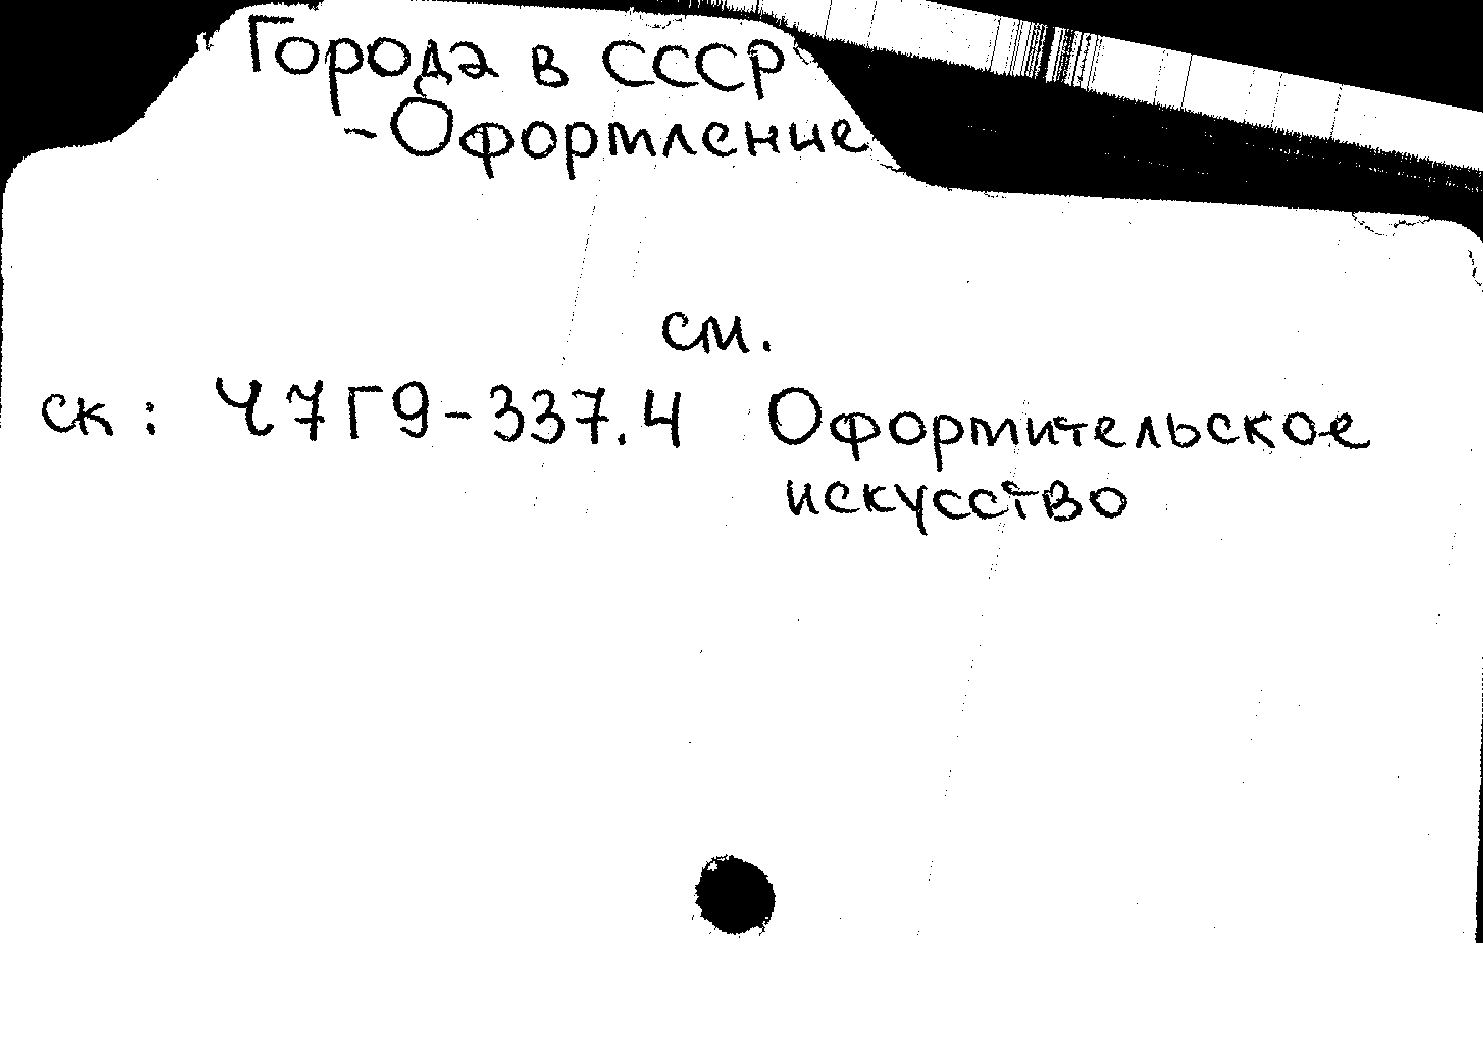 Города в СССР
-Оформление
см.
ск: Ч7Г9-337.4 Оформительское
искусство